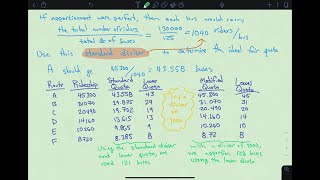 If apportionment were perfect, then each bus would carry
the total number of riders / total # of buses = 130000 / 125 = 1040 riders / bus
Use this standard divisor to determine the ideal for quota
A should get 45300 / 1040 = 43.558 buses
Route Ridership Standard Quota Lower Quota Modified Quota Lower Quota
A 45300 43.558 43 45.300 45
B 31070 29.875 29 31.070 31
C 20490 19.702 19 20.490 20
D 14160 13.615 13 14.160 14
E 10260 9.865 9 10.260 10
F 8720 8.385 8 8.72 8
Try a divisor of 1000?
Using the standard divisor
and lower quota, we
used 121 buses
With a divisor of 1000,
we apportion 128 buses
using the lower quota